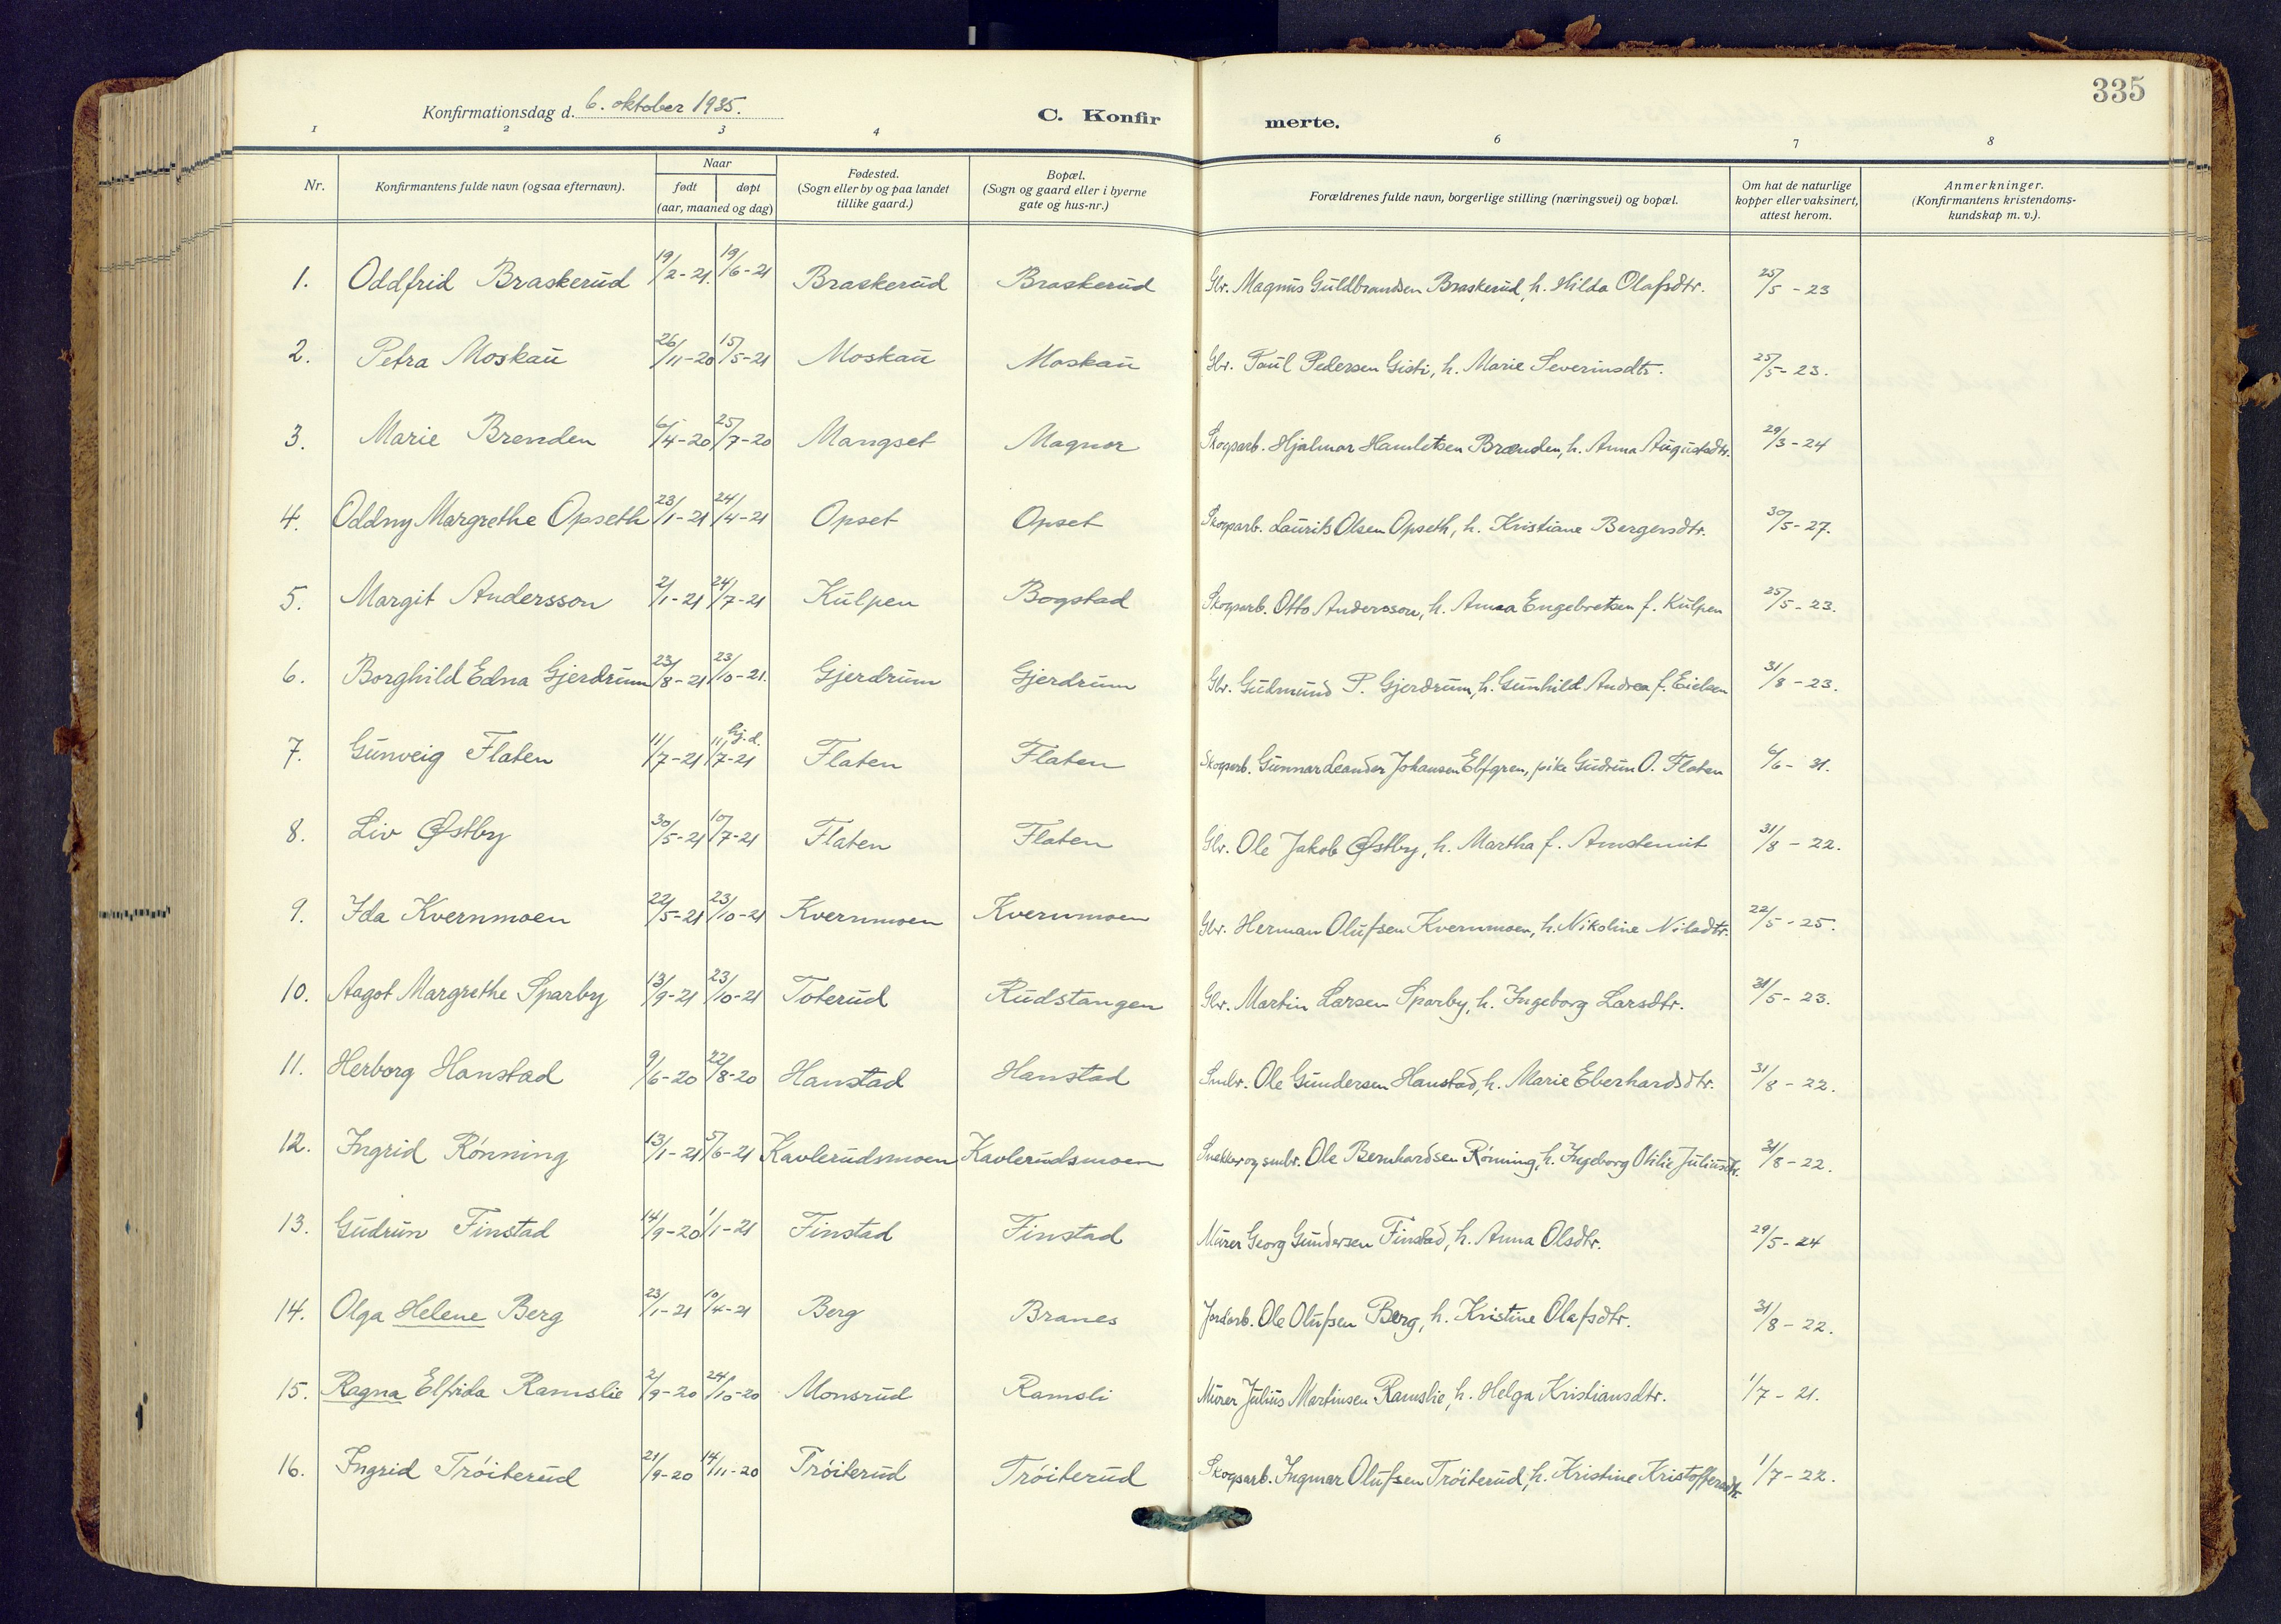 335
Konfirmationsdag d. 6. oktober 1935.
C. Konfirmerte.
1 2 3 4 6 7 8
Nr. | Konfirmantens fulde navn (ogsaa efternavn). | Naar født døpt (aar, maaned og dag) | Fødested. (Sogn eller by og paa landet tillike gaard.) | Bopæl. (Sogn og gaard eller i byerne gate og hus-nr.) | Forældrenes fulde navn, borgerlige stilling (næringsvei) og bopæl. | Om hat de naturlige kopper eller vaksinert, attest herom. | Anmerkninger. (Konfirmantens kristendomskundskap m. v.).
1. Oddfrid Braskerud 19/2-21. 19/6-21 Braskerud Braskerud Gbr. Magnus Guldbrandsen Braskerud, h. Hilda Olafsdtr. 25/5-23
2. Petra Moskau 26/11-20 15/5-21 Moskau Moskau Gbr. Paul Pedersen Gisti, h. Marie Severinsdtr. 25/5-23.
3. Marie Brenden 6/4-20 25/7-20 Mangset Magnor Skogsarb. Hjalmar Hamletsen Brænden, h. Anna Augustsdtr. 29/3-24
4. Oddny Margrethe Opseth 23/1-21 24/4-21 Opset Opset Skogsarb. Laurits Olsen Opseth, h. Kristiane Bergersdtr. 30/5-27.
5. Margit Andersson 2/1-21 24/7-21 Kulpen Bogstad Skogsarb. Otto Andersson, h. Anna Engebretsen f. Kulpen 25/5-23.
6. Borghild Edna Gjerdrum 23/8-21 23/10-21. Gjerdrum Gjerdrum Gbr. Gudmund P. Gjerdrum, h. Gunhild Andrea f. Eielsen 31/8-23.
7. Gunveig Flaten 11/7-21 hj.d. 11/7-21 Flaten Flaten Skogsarb. Gunnar Leander Johansen Elfgren, pike Gudrun O. Flaten 6/6-31.
8. Liv Østby 30/5-21 10/7-21 Flaten Flaten Gbr. Ole Jakob Østby, h. Martha f. 31/8-22.
9. Ida Kvernmoen 22/5-21 23/10-21 Kvernmoen Kvernmoen Gbr. Herman Olufsen Kvernmoen, h. Nikoline Nilsdtr. 22/5-25.
10. Aagot Margrethe Sparby 13/9-21 23/10-21 Toterud Rudstangen Gbr. Martin Larsen Sparby, h. Ingeborg Larsdtr. 31/5-23.
11. Herborg Hanstad 9/6-20 22/8-20 Hanstad Hanstad Smbr. Ole Gundersen Hanstad, h. Marie Eberhardsdtr. 31/8-22.
12. Ingrid Rönning 13/1-21 5/6-21 Kavlerudsmoen Kavlerudsmoen Snekker og smbr. Ole Bernhardsen Rönning, h. Ingeborg Otilie Juliusdtr. 31/8-22.
13. Gudrun Finstad 14/9-20 1/1-21 Finstad Finstad Murer Georg Gundersen Finstad, h. Anna Olsdtr. 29/5-24
14. Olga Helene Berg 23/1-21 10/4-21 Berg Branes Jordarb. Ole Olufsen Berg, h. Kristine Olafsdtr. 31/8-22.
15. Ragna Elfrida Ramslie 2/9-20 24/10-20 Monsrud Ramsli Murer Julius Martinsen Ramslie, h. Helga Kristiansdtr. 1/7-21.
16. Ingrid Tröiterud 21/9-20 14/11-20 Tröiterud Tröiterud Skogsarb. Ingmar Olufsen Tröiterud, h. Kristine Kristoffersdtr. 1/7-22.